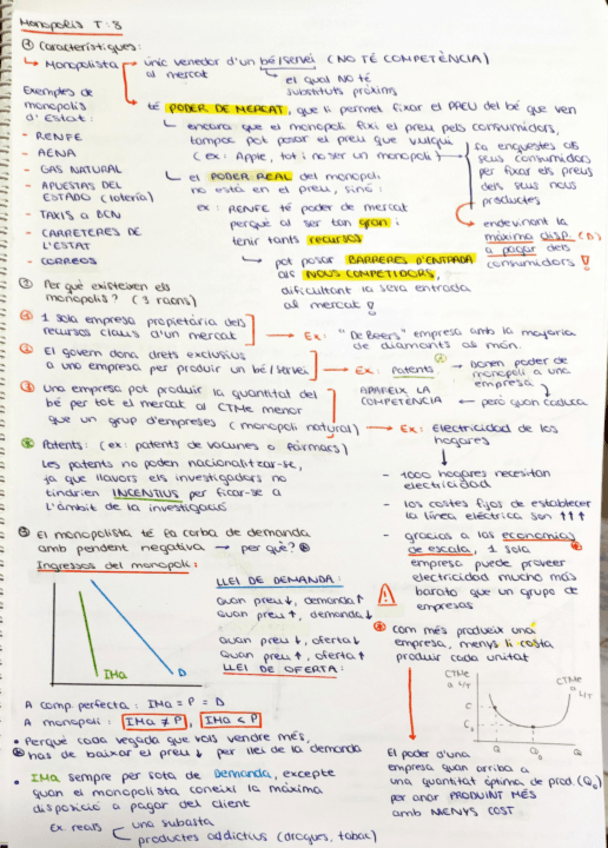 Monopolis T:8
① Característiques:
↳ Monopolista → únic venedor d'un bé/servei (NO TÉ COMPETÈNCIA)
al mercat
↳ el qual NO té
substituts pròxims
Exemples de
monopolis
d'Estat:
- RENFE
- AENA
- GAS NATURAL
- APUESTAS DEL
ESTADO (lotería)
- TAXIS a BCN
- CARRETERES DE
L'ESTAT
- CORREOS
té PODER DE MERCAT, que li permet fixar el PREU del bé que ven
↳ encara que el monopoli fixi el preu pels consumidors,
tampoc pot posar el preu que vulgui
(ex: Apple, tot i no ser un monopoli) →
fa enquestes als
seus consumidors
per fixar els preus
dels seus nous
productes
endevinant la
màxima disp. (D)
a pagar dels
consumidors !
↳ el PODER REAL del monopoli
no està en el preu, sinó:
ex: RENFE té poder de mercat
perquè al ser tan gran i
tenir tants recursos
↳ pot posar BARRERES D'ENTRADA
als NOUS COMPETIDORS,
dificultant la seva entrada
al mercat !
② Per què existeixen els
monopolis? (3 raons)
① 1 sola empresa propietària dels
recursos claus d'un mercat → Ex: "De Beers" empresa amb la majoria
de diamants al món.
② El govern dona drets exclusius
a una empresa per produir un bé/servei → Ex: Patents → Donen poder de
monopoli a una
empresa
però quan caduca
APAREIX LA
COMPETÈNCIA
③ Una empresa pot produir la quantitat del
bé per tot el mercat al CTMe menor
que un grup d'empreses (monopoli natural) → Ex: Electricidad de los
hogares
Patents: (ex: patents de vacunes o fàrmacs)
Les patents no poden nacionalitzar-se,
ja que llavors els investigadors no
tindrien INCENTIUS per ficar-se a
l'àmbit de la investigació
- 1000 hogares necesitan
electricidad
- los costes fijos de establecer
la línea eléctrica son ↑↑↑
- gracias a las economías
de escala, 1 sola
empresa puede proveer
electricidad mucho más
barato que un grupo de
empresas
③ El monopolista té la corba de demanda
amb pendent negativa → per què?
Ingressos del monopoli:
IMa
D
LLEI DE DEMANDA:
Quan preu ↓, demanda ↑
Quan preu ↑, demanda ↓
Quan preu ↓, oferta ↓
Quan preu ↑, oferta ↑
LLEI DE OFERTA:
com més produeix una
empresa, menys li costa
produir cada unitat
CTMe
a L/T
CTMe
a L/T
C
C₀
Q
Q₀
Q
A comp. perfecta: IMa = P = D
A monopoli: IMa ≠ P, IMa < P
• Perquè cada vegada que vols vendre més,
has de baixar el preu ↓ per llei de la demanda
• IMa sempre per sota de Demanda, excepte
quan el monopolista coneixi la màxima
disposició a pagar del client
Ex. reals
una subasta
productes addictius (drogues, tabac)
El poder d'una
empresa quan arriba a
una quantitat òptima de prod. (Q₀)
per anar PRODUINT MÉS
amb MENYS COST